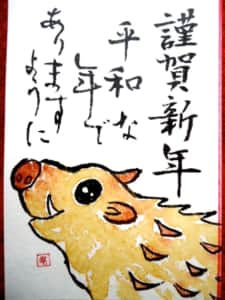 謹賀新年
平和な
年で
あります
ように